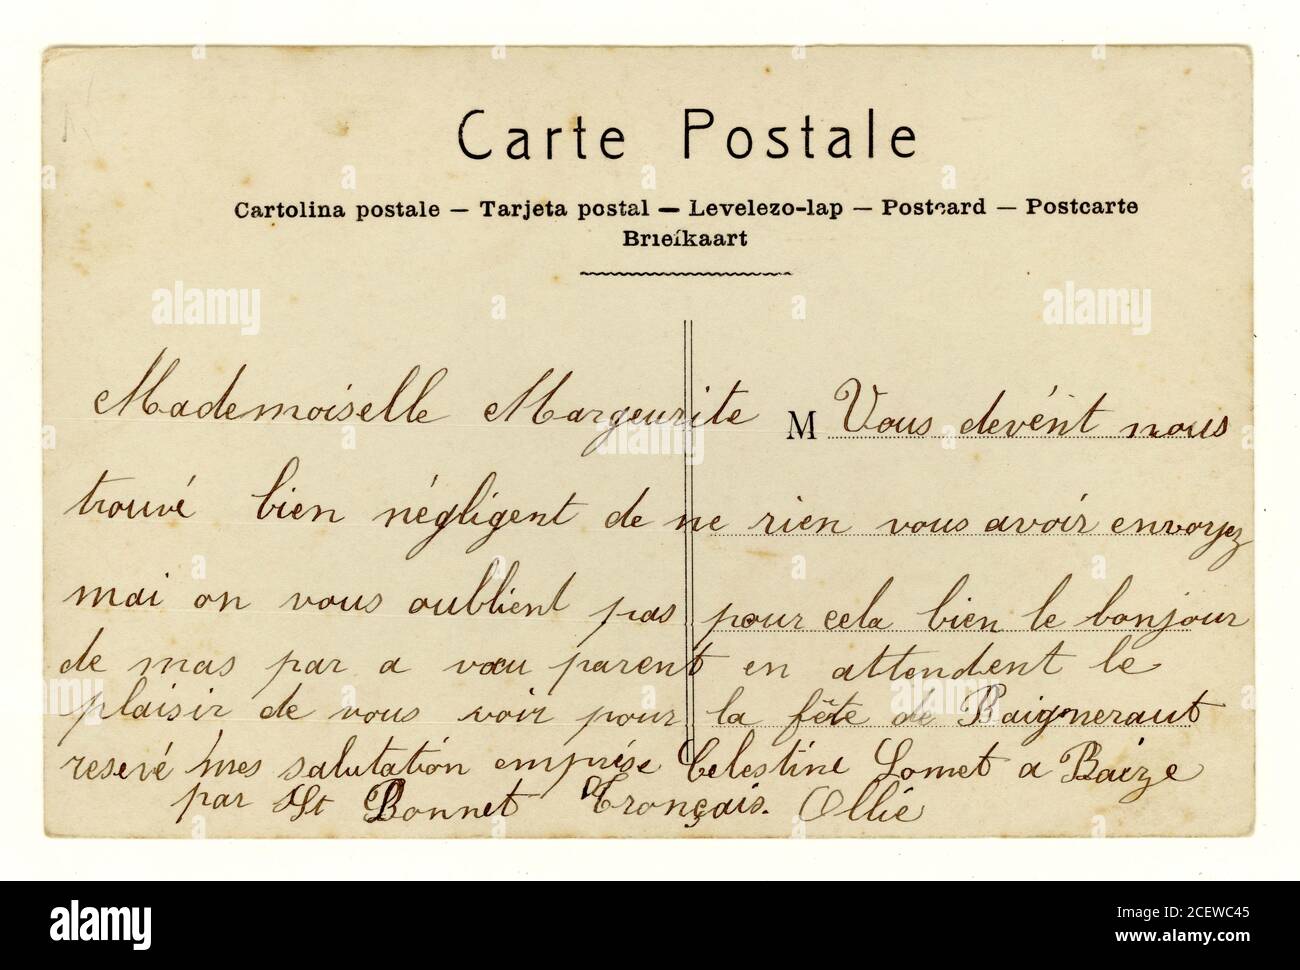 Carte Postale
Cartolina postale — Tarjeta postal — Levelezo-lap — Postcard — Postcarte
Brieíkaart
Mademoiselle Margeurite M Vous devént nous
trouvé bien négligent de ne rien vous avoir envoyez
mai on vous oublient pas pour cela bien le bonjour
de mas par a vou parent en attendent le
plaisir de vous voir pour la fête de Baigneraut
resevé mes salutation emprése Celestine Lomet a Baize
par St Bonnet Tronçais. Ollié
alamy
alamy
Image ID: 2CEWC45
www.alamy.com